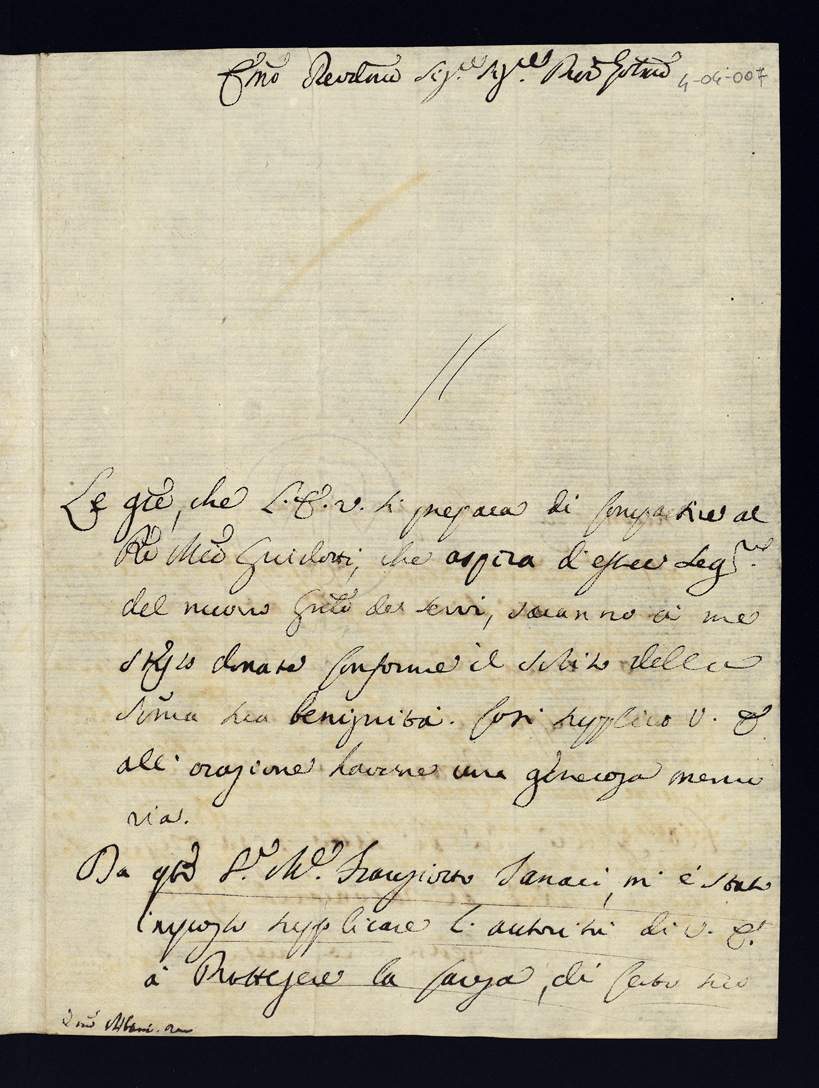 Emo Revdmo Sigre Sigre Pron Colmo
4-04-007
Le grẽ, che L. E. V. si prepara di compartire al
Rẽ Mrõ Guidotti, che aspira d'essere Segrio
del nuovo Gnle de' Servi, saranno à me
stesso donate conforme il solito della
Soma sua benignità. Così supplico V. E.
all' orazione haverne una generosa memo
ria.
Da qto Sr. Me. Franco Sanaci, mi è stato
imposto supplicare l' autorità di V. E.
à Proteggere la causa, di certo suo